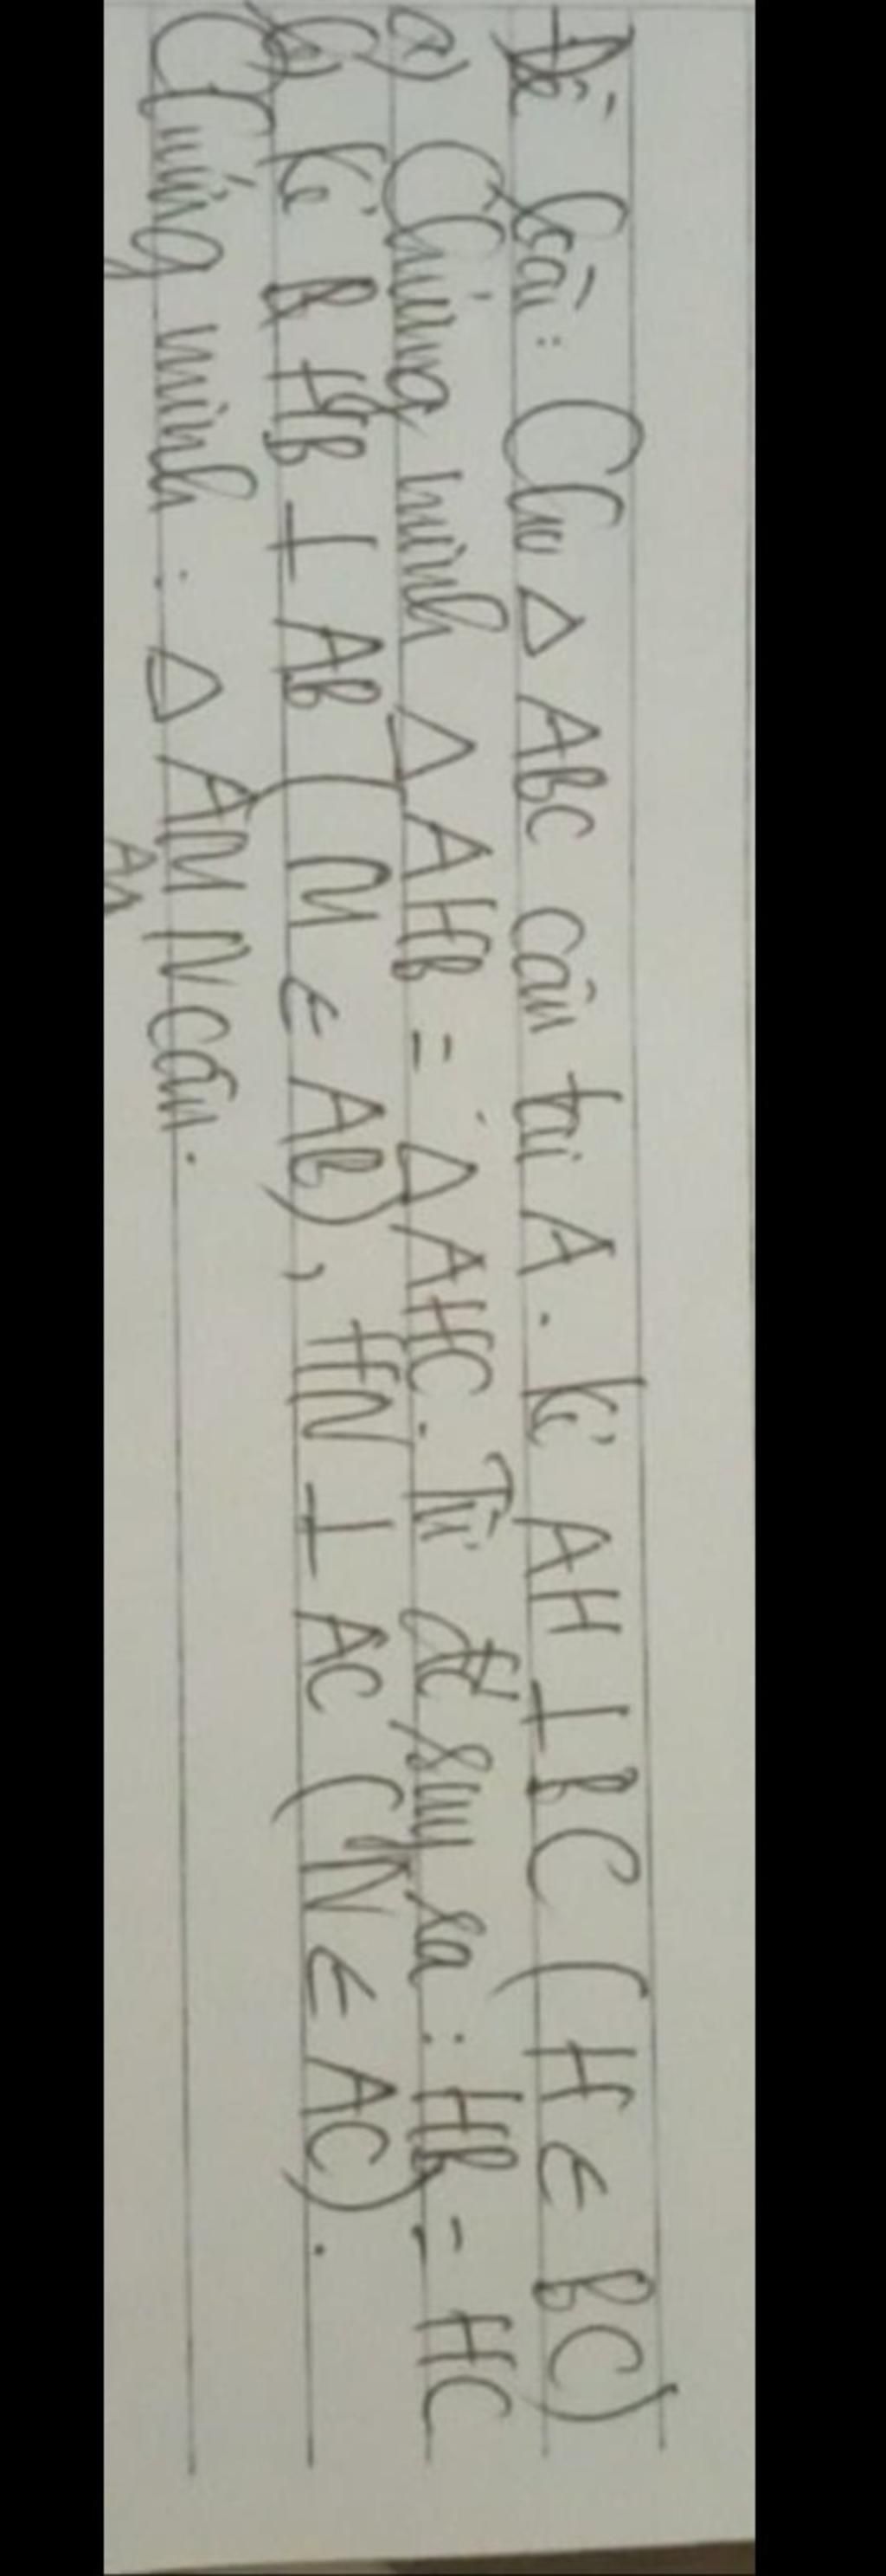 Đề bài: Cho Δ ABC cân tại A. Kẻ AH ⊥ BC (H ∈ BC)
a) Chứng minh Δ AHB = Δ AHC. Từ đó suy ra: HB = HC
b) Kẻ HB ⊥ AB (M ∈ AB), HN ⊥ AC (N ∈ AC).
Chứng minh: Δ AMN cân.